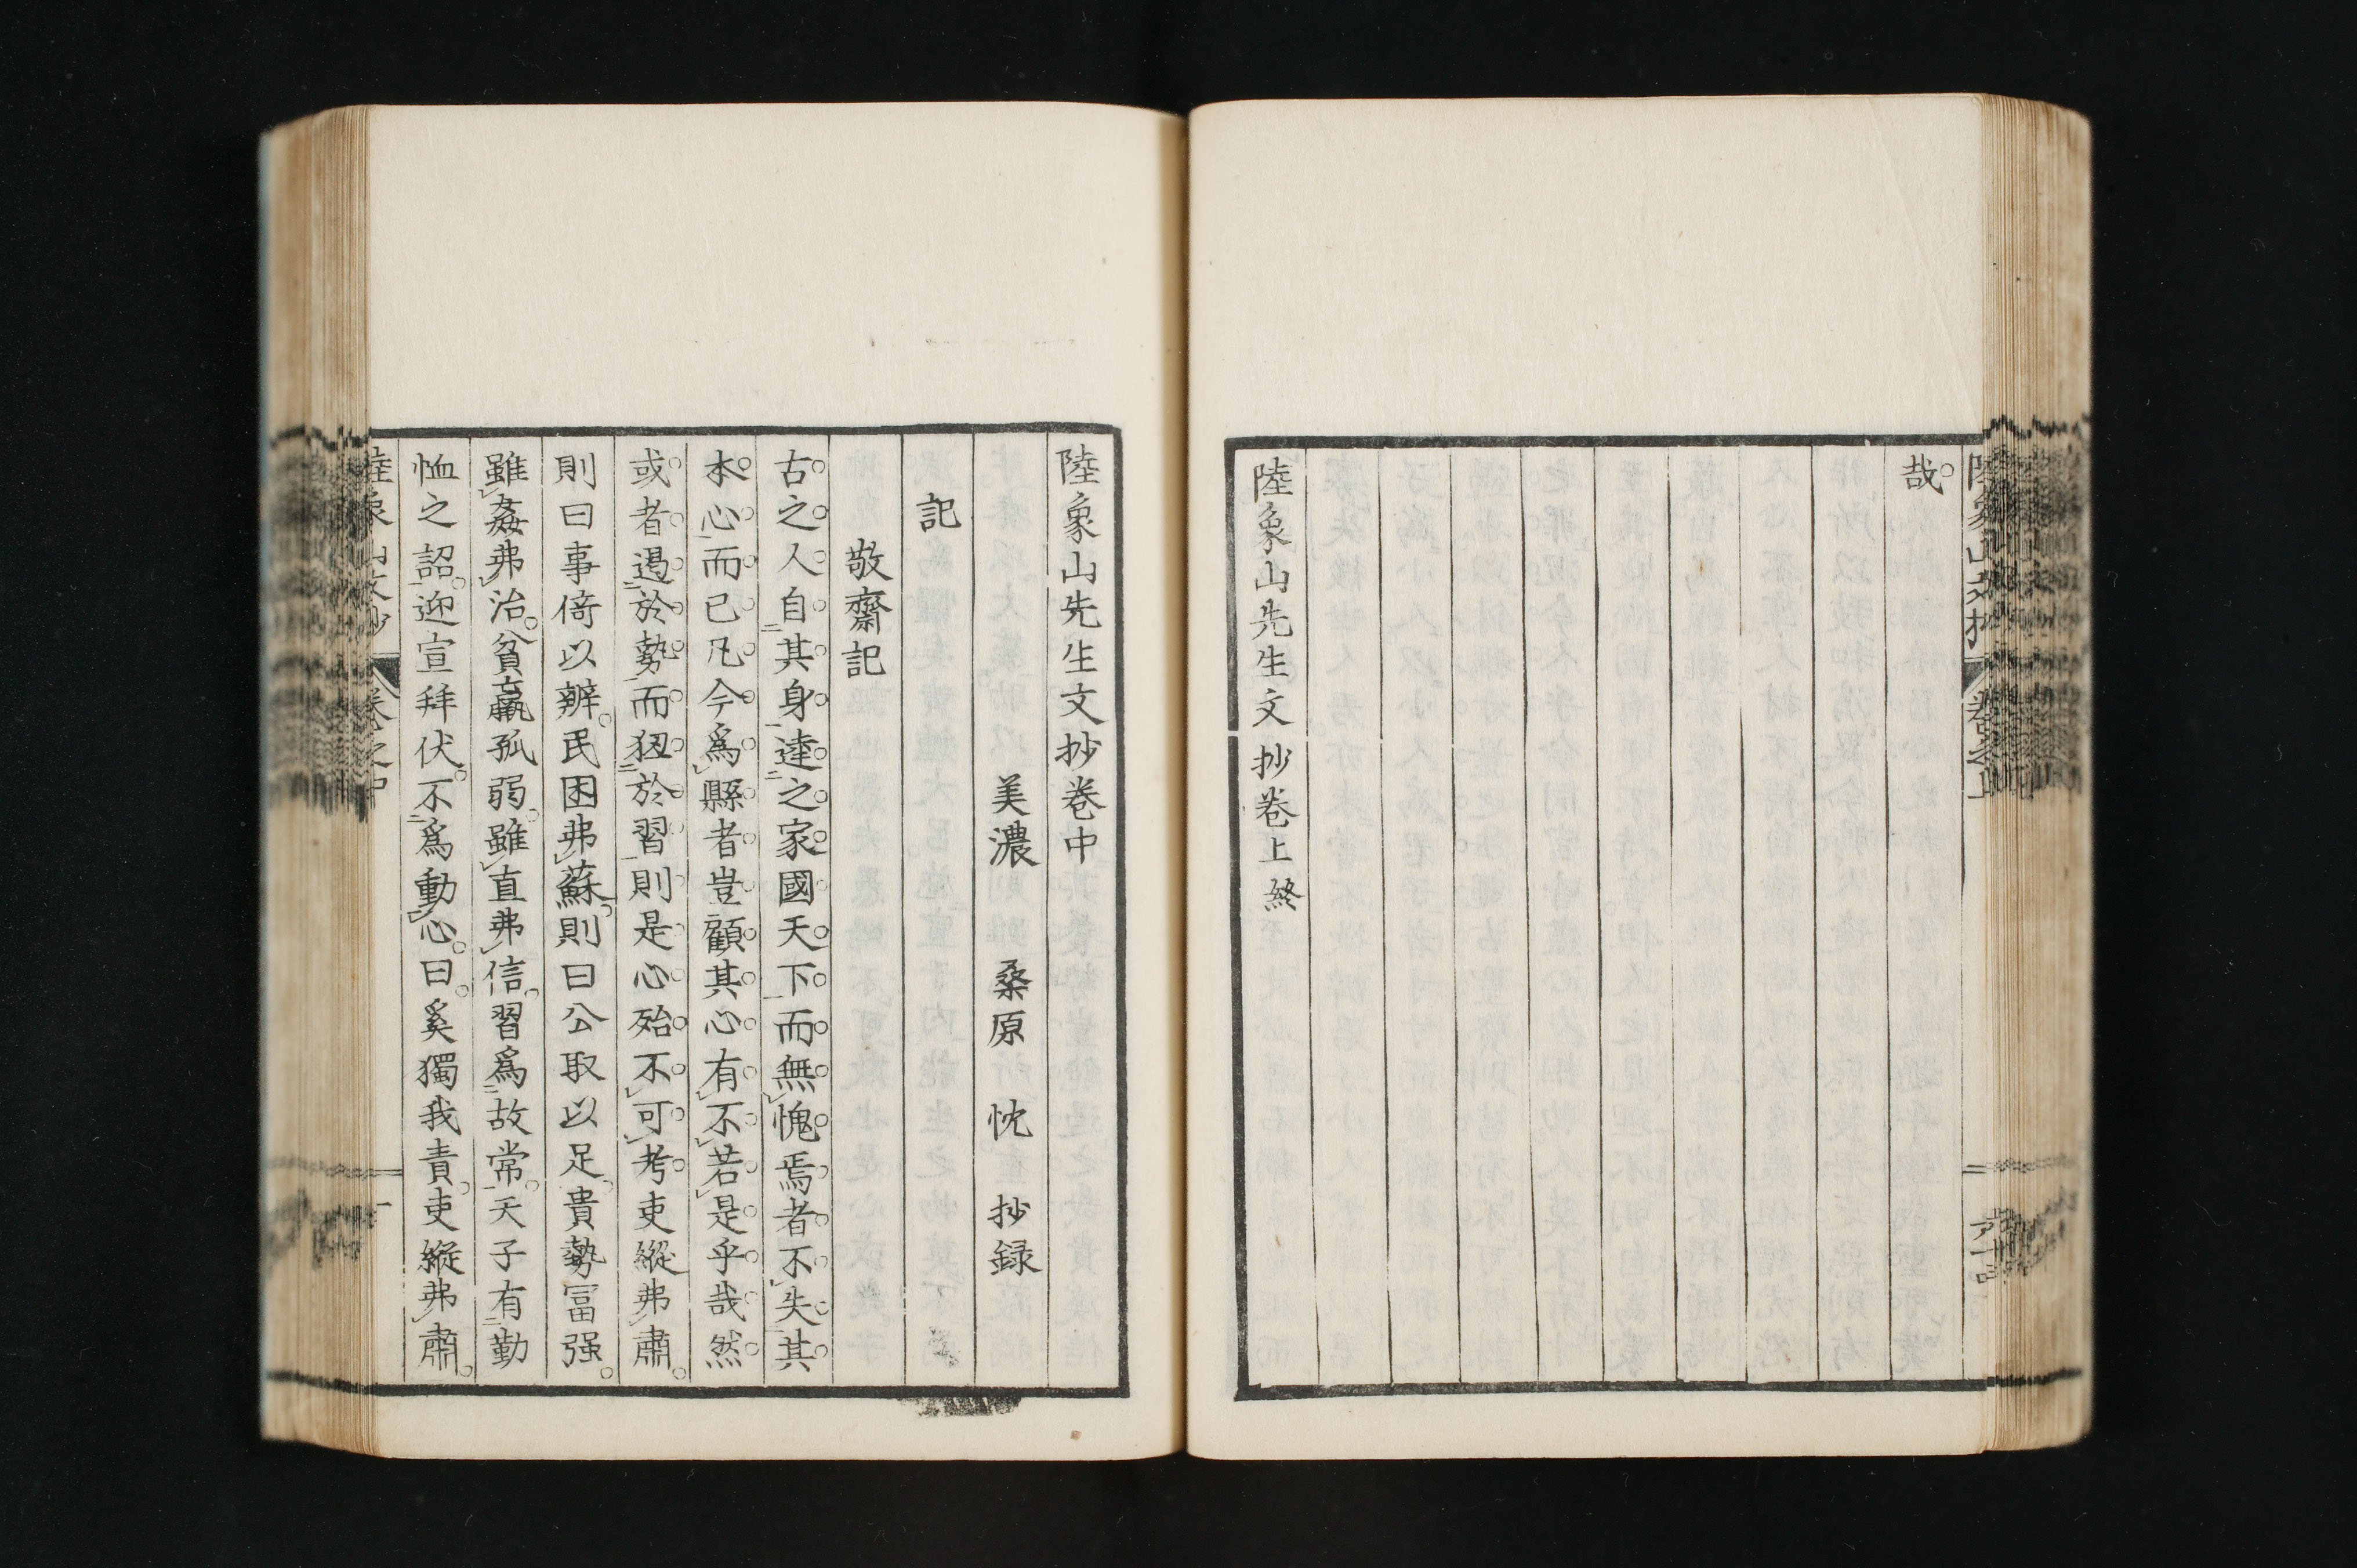 哉
陸象山先生文抄卷上終
陸象山先生文抄卷中
美濃 桑原 忱 抄録
記
敬齋記
古之人自其身達之家國天下而無愧焉者不失其
本心而已凡今爲縣者豈顧其心有不若是乎哉然
或者遏於勢而狃於習則是心殆不可考吏縱弗肅
則曰事倚以辨民困弗蘇則曰公取以足貴勢冨强
雖姦弗治貧羸孤弱雖直弗信習爲故常天子有勤
恤之詔迎宣拜伏不爲動心曰奚獨我責吏縱弗肅
陸象山文抄 卷之中 一